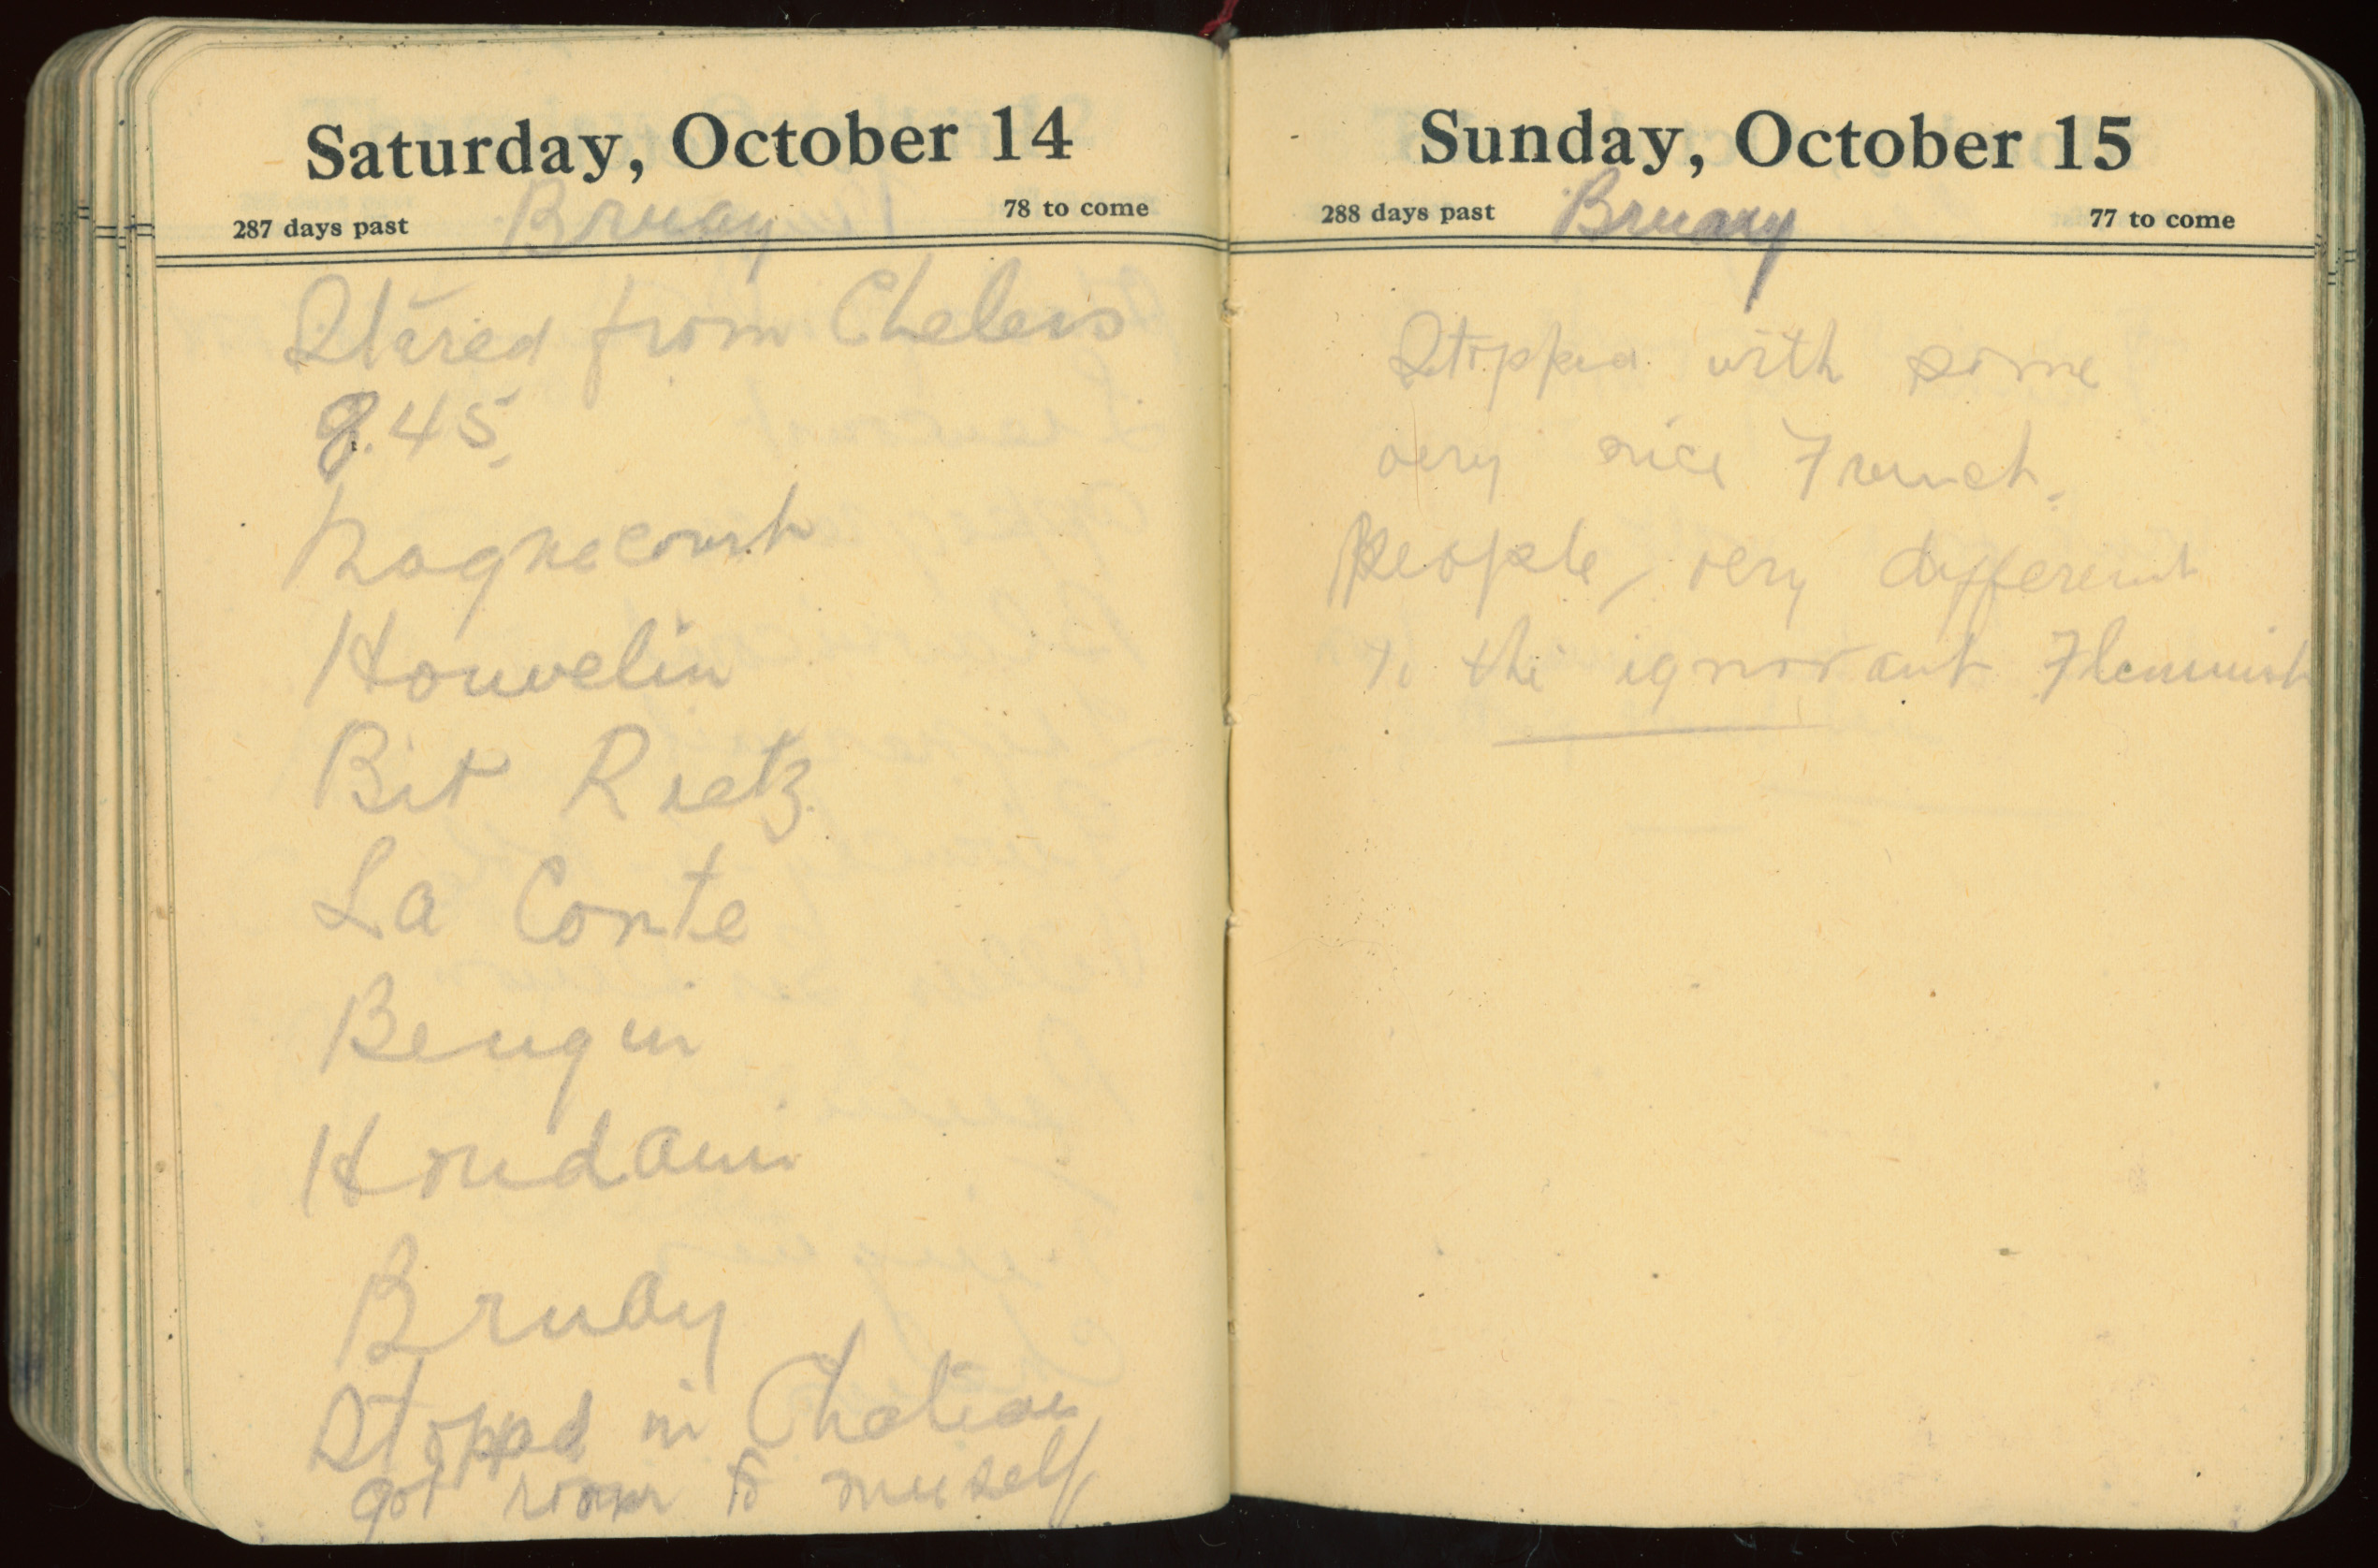 Saturday, October 14
287 days past Bruay 78 to come
Stared from Chelers
9.45.
Magnecourt
Houvelin
Bit Rietz
La Conte
Beugin
Houdain
Bruay
Stopped in Chateau
got room to myself
Sunday, October 15
288 days past Bruay 77 to come
Stopped with some
very nice French.
People, very different
to the ignorant Flemmish